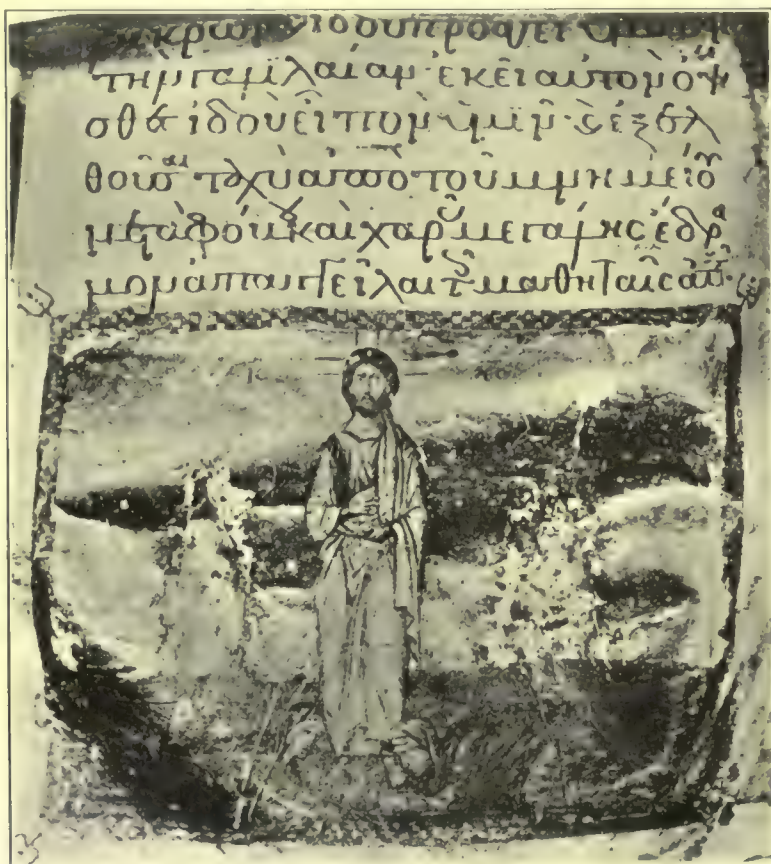 κρων ἰδοὺ προάγει ὑμᾶς
τὴν γαλιλαίαν· ἐκεῖ αὐτὸν ὄψε
σθε ἰδοὺ εἶπον ὑμῖν· ϗ ἐξελ
θοῦσαι ταχὺ ἀπὸ τοῦ μνημείου
μετὰ φόβου καὶ χαρᾶς μεγάλης ἔδρα
μον ἀπαγγεῖλαι τοῖς μαθηταῖς αὐτοῦ·